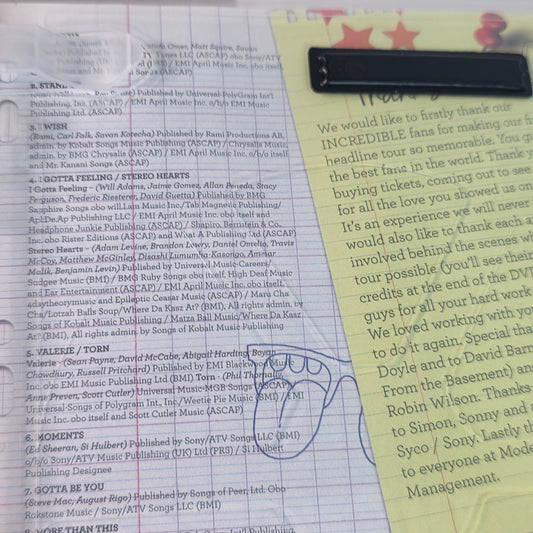 2. STAND
Publishing, Inc. (ASCAP) / EMI April Music Inc. o/b/o EMI Music
Publishing Ltd. (ASCAP)
3. I WISH
(Rami, Carl Falk, Savan Kotecha) Published by Rami Productions AB,
admin. by Kobalt Songs Music Publishing / Chrysalis Music,
admin. by BMG Chrysalis (ASCAP) / EMI April Music Inc. o/b/o itself
and Mr. Kanani Songs (ASCAP)
4. I GOTTA FEELING / STEREO HEARTS
I Gotta Feeling - (Will Adams, Jaime Gomez, Allan Peneda, Stacy
Ferguson, Frederic Riesterer, David Guetta) Published by BMG
Sapphire Songs obo will.i.am Music Inc/Tab Magnetic Publishing/
Apl.De.Ap Publishing LLC / EMI April Music Inc. obo itself and
Headphone Junkie Publishing (ASCAP) / Shapiro, Bernstein & Co.,
Inc. obo Rister Editions (ASCAP) and What A Publishing Ltd (ASCAP)
Stereo Hearts - (Adam Levine, Brandon Lowry, Daniel Omelio, Travis
McCoy, Matthew McGinley, Disashi Lumumba-Kasongo, Ammar
Malik, Benjamin Levin) Published by Universal Music-Careers/
Sudgee Music (BMI) / BMG Ruby Songs obo itself, High Deaf Music
and Ear Entertainment (ASCAP) / EMI April Music Inc. obo itself,
Maytheorymusic and Epileptic Ceasar Music (ASCAP) / Maru Cha
Cha/Lotzah Balls Soup/Where Da Kasz At? (BMI), All rights admin. by
Songs of Kobalt Music Publishing / Matza Ball Music/Where Da Kasz
At? (BMI), All rights admin. by Songs of Kobalt Music Publishing
5. VALERIE / TORN
Valerie - (Sean Payne, David McCabe, Abigail Harding, Boyan
Chowdhury, Russell Pritchard) Published by EMI Blackwood Music
Inc. obo EMI Music Publishing Ltd (BMI) Torn - (Phil Thornalley,
Anne Preven, Scott Cutler) Universal Music-MGB Songs (ASCAP)/
Universal-Songs of Polygram Int., Inc./Weetie Pie Music (BMI) / EMI
Music Inc. obo itself and Scott Cutler Music (ASCAP)
6. MOMENTS
(Ed Sheeran, Si Hulbert) Published by Sony/ATV Songs LLC (BMI)
o/b/o Sony/ATV Music Publishing (UK) Ltd (PRS) / Si Hulbert
Publishing Designee
7. GOTTA BE YOU
(Steve Mac, August Rigo) Published by Songs of Peer, Ltd. Obo
Rokstone Music / Sony/ATV Songs LLC (BMI)
8. MORE THAN THIS
We would like to firstly thank our
INCREDIBLE fans for making our fi
headline tour so memorable. You g
the best fans in the world. Thank y
buying tickets, coming out to see
for all the love you showed us on
It's an experience we will never
would also like to thank each a
involved behind the scenes w
tour possible (you'll see their
credits at the end of the DV
guys for all your hard work
We loved working with yo
to do it again. Special tha
Doyle and to David Barn
From the Basement) an
Robin Wilson. Thanks
to Simon, Sonny and
Syco / Sony. Lastly th
to everyone at Mode
Management.